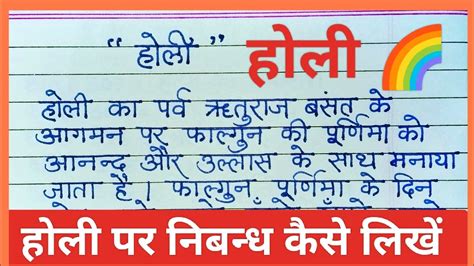 “ होली ” होली
होली का पर्व ऋतुराज बसंत के
आगमन पर फाल्गुन की पूर्णिमा को
आनन्द और उल्लास के साथ मनाया
जाता है । फाल्गुन पूर्णिमा के दिन
होली पर निबन्ध कैसे लिखें